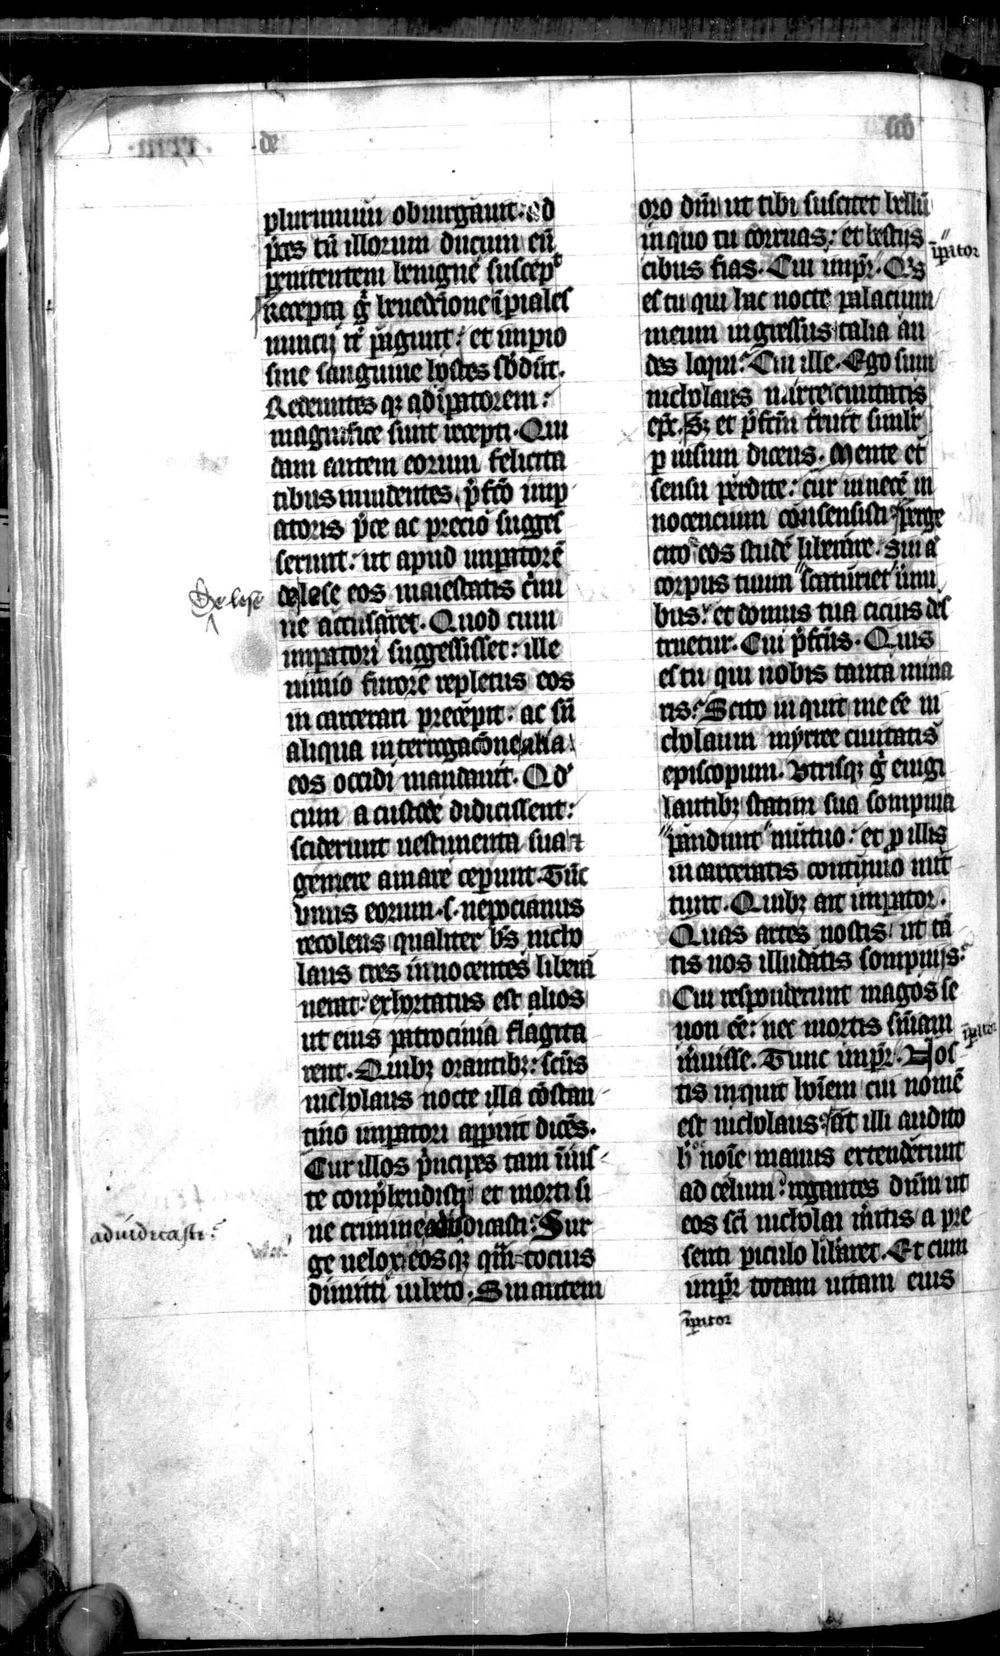 plurimum obiurgauit. Ad
p̄ces tn̄ illorum ducum eū
penitentem benigne suscep̄
Recepta gͥ benedc̄ione īpiales
nuncij itē ꝑagunt: et impio
sine sanguine hostes sb̄dūt.
Redeuntes qꝫ ad īpatorem:
magnifice sunt recepti. Qui
dam autem eorum felicita
tibus inuidentes p̄fc̄o imp
atoris p̄ce ac precio sugges
serunt: ut apud impatorē
de lese eos maiestatis c̄imi
De lese
ne accusaret. Quod cum
impatori suggessisset: ille
nimio furore repletus eos
in carcerari precepit: ac sn̄
aliqua interrogac̄one
eos occidi mandauit. Qd
cum a custode didicissent:
sciderunt uestimenta sua ⁊
gemere amare ceperunt. Tūc
vnus eorum .s. nepocianus
recolens qualiter bt̄s nicho
laus tres innocentes libera
uerat: exhortatus est alios
ut eius patrocinia flagita
rent. Quibꝫ orantibꝫ: sc̄us
nicholaus nocte illa cōstan
tino impatori apparuit dicēs.
Cur illos pͥncipes tam īius
te conp̄hendisti et morti si
ne crimine adiudicasti: Sur
adiudicasti:
ge uelox eosqꝫ qm̄tocius
dimitti iubeto. Sin autem
oro dm̄ ut tibi suscitet bellū
in quo tu corruas: et bestijs
īpator
cibus fias. Cui imp̄r. Q̄s
es tu qui hac nocte palacium
meum ingressus talia au
des loqui: Cui ille. Ego sum
nicholaus mirree ciuitatis
ep̄c. Sꝫ et p̄fc̄m t̄ruit simil̄r
ꝑ uisum dicens. Mente et
sensu perdite: cur in necē in
nocencium consensisti: perge
cito eos stude liberare. Sin aͧ
corpus tuum scaturiet ūmi
bus: et domus tua cicius des
truetur. Cui p̄fc̄us. Quis
es tu qui nobis tanta mina
ris: Scito inquit me eē ni
cholaum myrree ciuitatis
episcopum. Vtrisqꝫ gͥ euigi
lantibꝫ statim sua sompnia
pandunt mutuo: et ꝓ illis
incarceratis continuo mit
tunt. Quibꝫ ait impator.
Quas artes nostis ut tā
tis nos illudatis sompnijs:
Cui responderunt magos se
non eē: nec mortis sn̄iam
īpator
m̄uisse. Tunc imp̄r. Nos
tis inquit hoīem cui nomē
est nicholaus: At illi audito
hͦ noīe manus extenderunt
ad celum: rogantes dūm ut
eos sc̄i nicholai m̄itis a pre
senti piculo lib̄aret. Et cum
imp̄r totam uitam eius
īpator